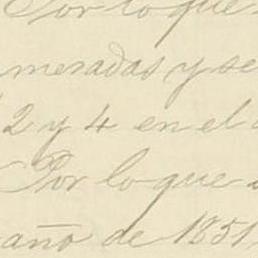 Por lo que
meradas y se
2 y 4 en el
Por lo que
año de 1851